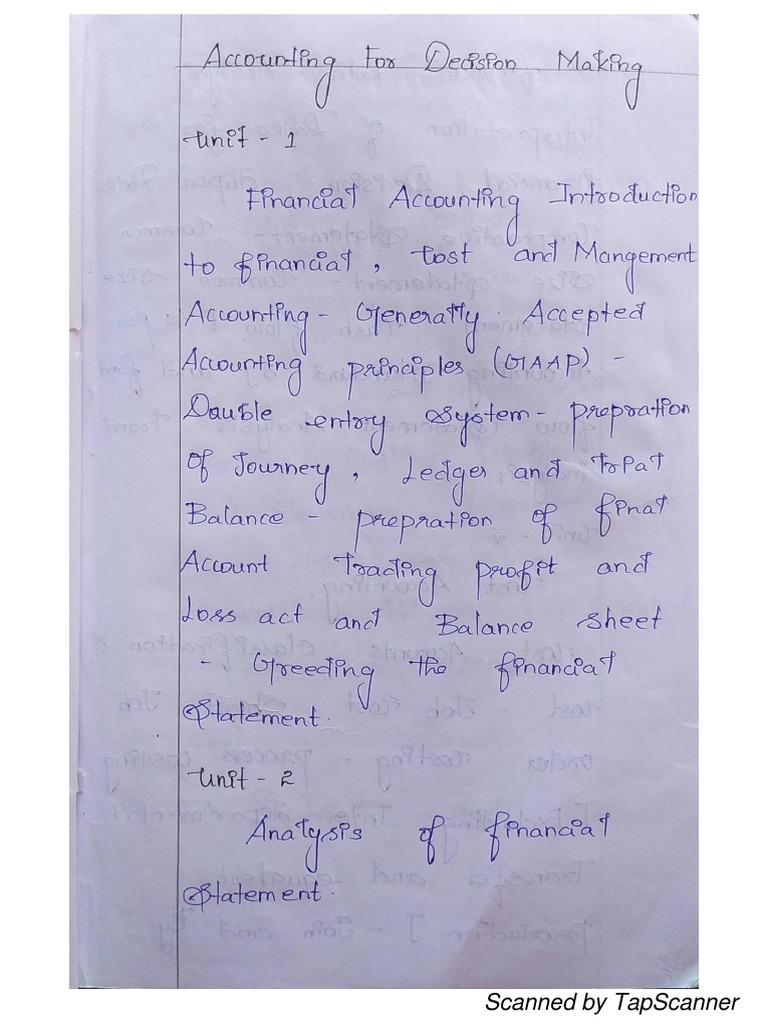 Accounting For Decision Making
Unit - 1
Financial Accounting Introduction
to financial, Cost and Mangement
Accounting - Generally Accepted
Accounting principles (GAAP) -
Double entry system - prepration
of Journey, Ledger and
Balance - prepration of final
Account Trading profit and
Loss act and Balance sheet
- Greeding the financial
Statement.
Unit - 2
Analysis of financial
Statement.
Scanned by TapScanner